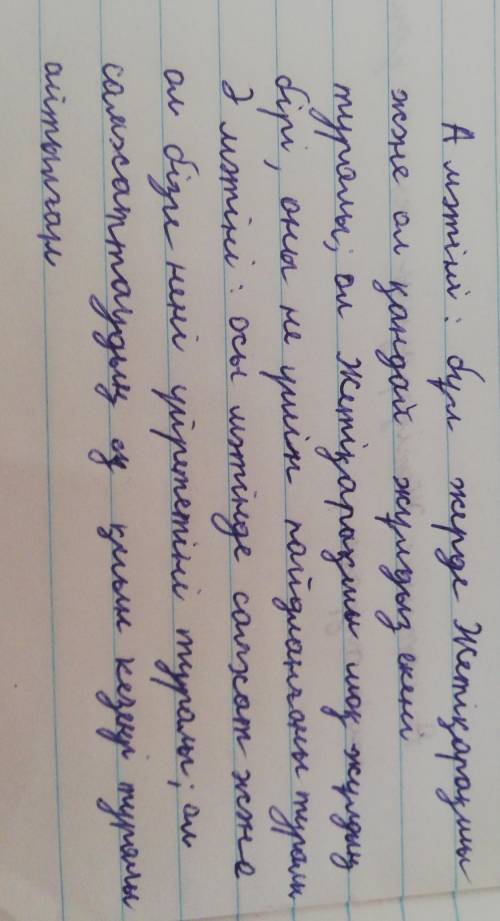 А мәтіні: бұл жерде Жетіқарақшы
және ол қандай жұлдыз екені
туралы, ол Жетіқарақшы шоқ жұлдыз
бірі, оны не үшін пайдаланғаны туралы
Ә мәтіні: осы мәтінде саяхат және
ол бізге нені үйрететіні туралы, ол
саяхаттаудың ең қиын кезеңі туралы
айтылған